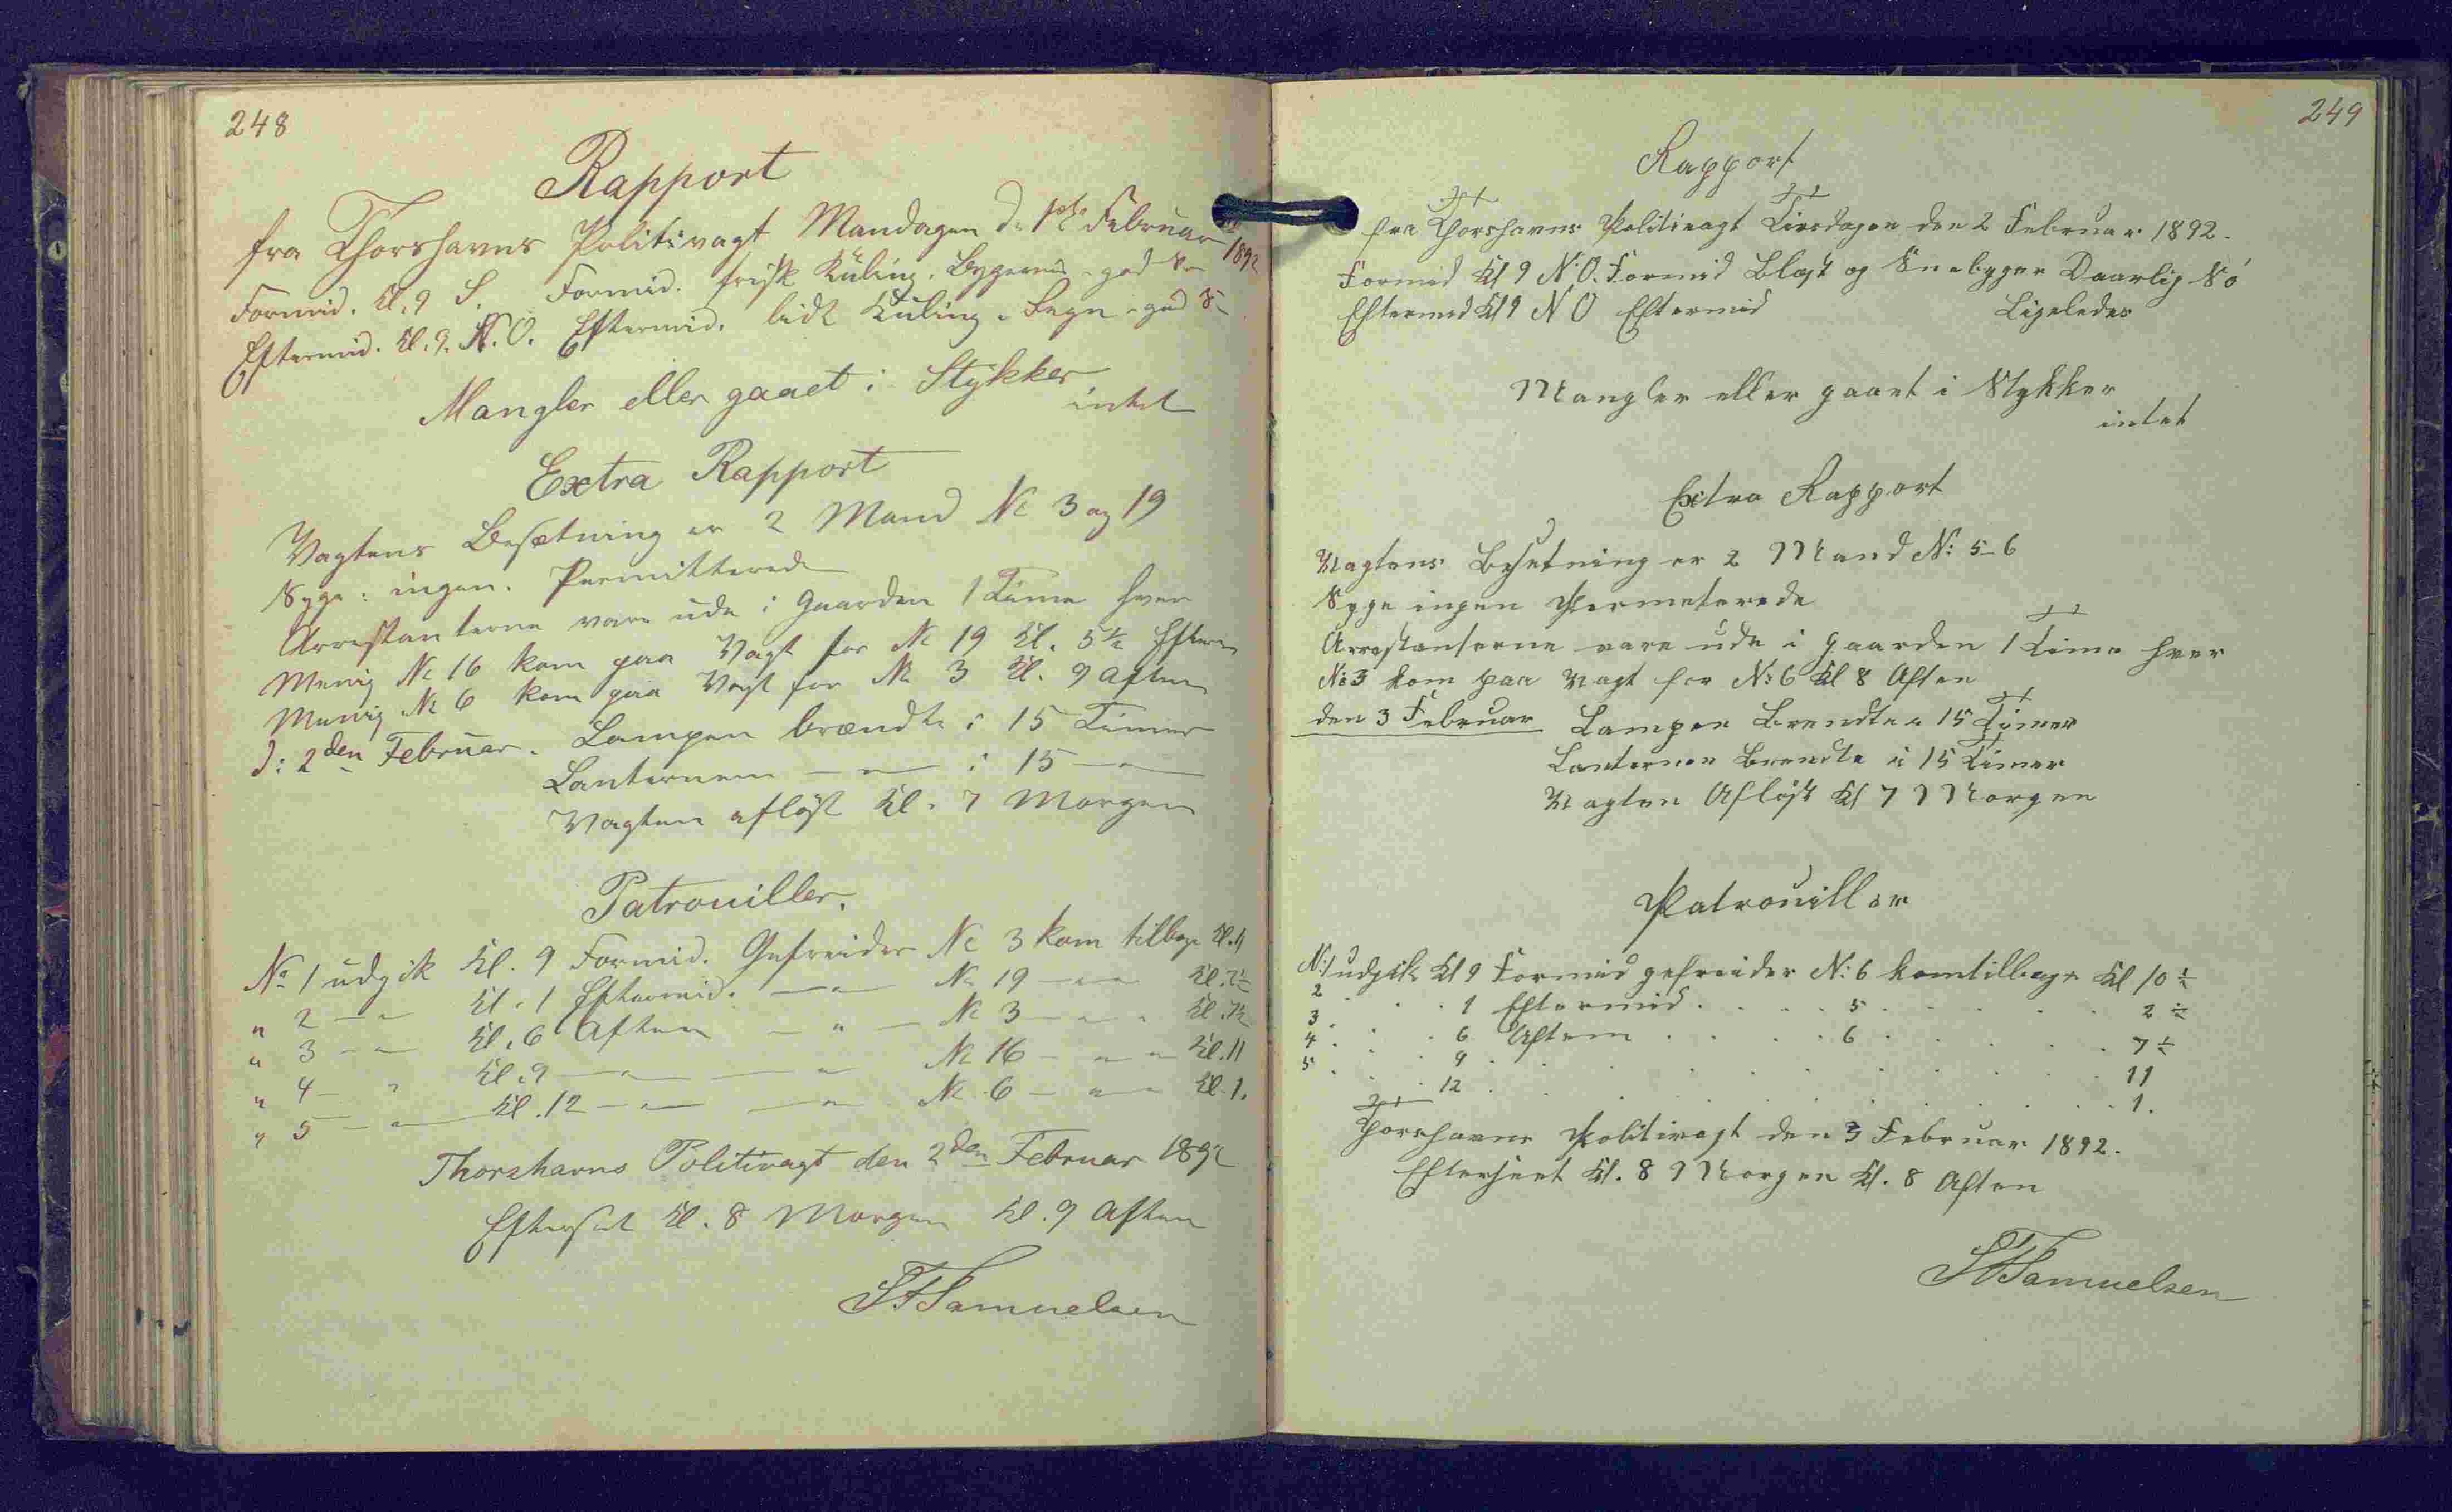 248
Rapport
fra Thorshavns Politivagt Mandagen d. 1ste Februar 1892
Formid. Kl. 9 S. Formid. frisk Kuling. Bygeveir - god Sø
Eftermid. Kl. 9. N.O. Eftermid. lidt Kuling. Regn - god Sø
Mangler eller gaaet i Stykker
intet
Extra Rapport
Vagtens Besætning er 2 Mand No 3 og 19
Syge: ingen. Permitterede
Arrestanterne vare ude i Gaarden 1 Time hver
Menig No 16 kom paa Vagt for No 19 Kl. 5½ Efterm
Menig No 6 kom paa Vagt for No 3 Kl. 9 Aften
D: 2den Februar. Lampen brændte i 15 Timer
Lanternen — " — i 15 — " —
Vagten afløst Kl. 7 Morgen
Patrouiller.
No 1 udgik Kl. 9 Formid. Gefreider No 3 kom tilbage Kl. 11
" 2 — " — Kl. 1 Eftermid. — " — No 19 — " — Kl. 2½
" 3 — " — Kl. 6 Aften — " — No 3 — " — Kl. 7½
" 4 — " Kl. 9 — " — — " — No 16 — " — Kl. 11
" 5 — " — Kl. 12 — " — — " — No 6 — " — Kl. 1.
Thorshavns Politivagt den 2den Februar 1892
Efterset Kl. 8 Morgen Kl. 9 Aften
Samuelsen
249
Rapport
fra Thorshavns Politivagt Tirsdagen den 2 Februar 1892.
Formid Kl 9 N.O. Formid Blæst og Snebyger Daarlig Sø
Eftermid Kl 9 N O Eftermid Ligeledes
Mangler eller gaaet i Stykker
intet
Extra Rapport
Vagtens Besetning er 2 Mand N: 5-6
Syge ingen Permeterede
Arrestanterne vare ude i Gaarden 1 Time hver
No 3 kom paa Vagt for N: 6 Kl 8 Aften
den 3 Februar Lampen Brendte i 15 Timer
Lanternen Brendte i 15 Timer
Vagten Afløst Kl 7 Morgen
Patrouiller
N: 1 udgik Kl 9 Formid gefreider N: 6 kom tilbage Kl 10½
2 . . . 1 Eftermid . . . . 5 . . . . . 2½
3 . . . 6 Aften . . . . 6 . . . . . 7½
4 . . . 9 . . . . . . . . . . 11
5 . . . 12 . . . . . . . . . . 1.
Thorshavns Politivagt den 3 Februar 1892.
Efterseet Kl. 8 Morgen Kl. 8 Aften
Samuelsen